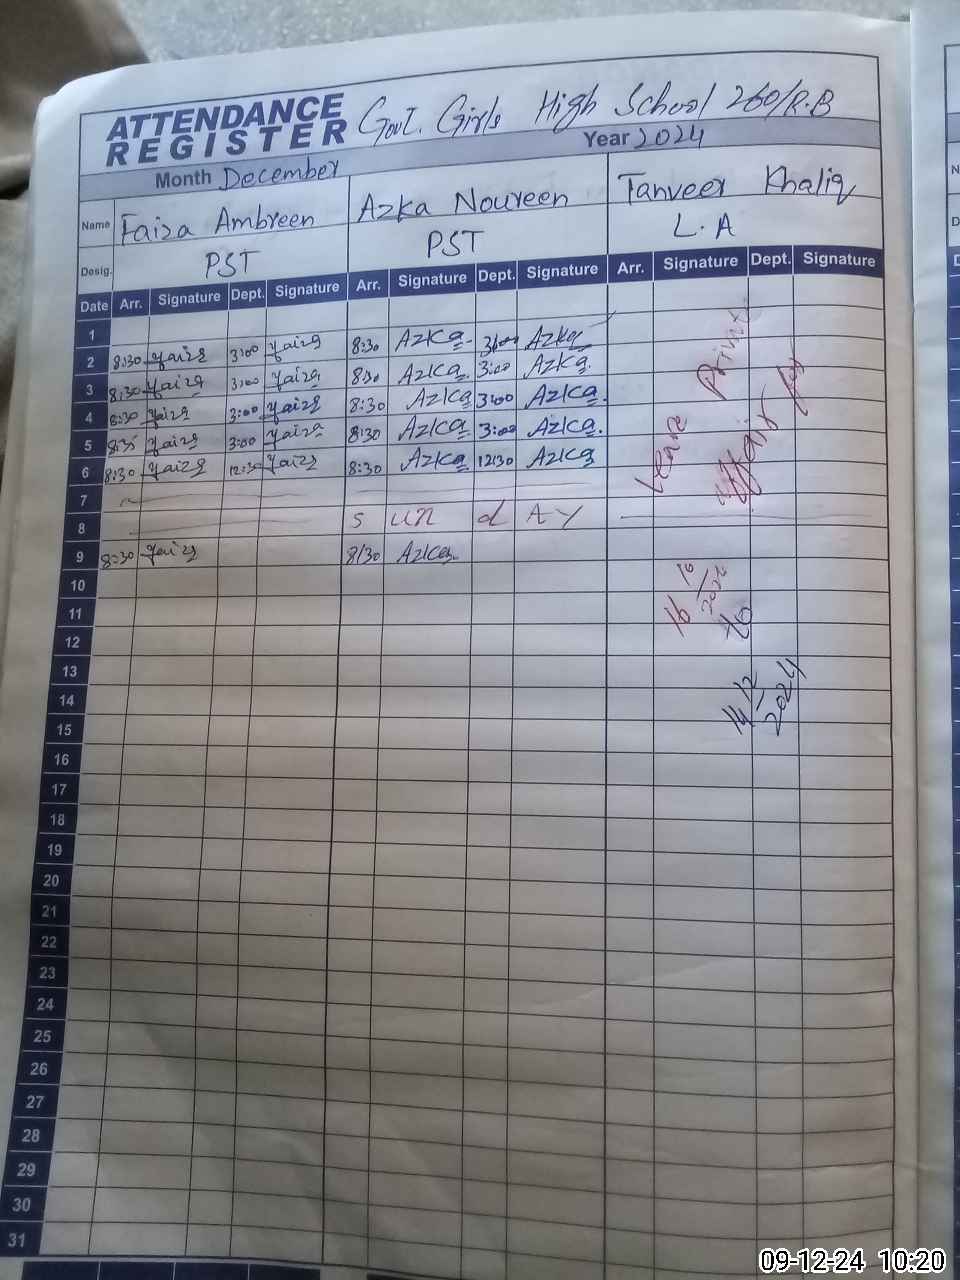 ATTENDANCE REGISTER Govt. Girls High School 260/R.B
Month December Year 2024
Name Faiza Ambreen Azka Noureen Tanveer Khaliq
Desig. PST PST L.A
Date Arr. Signature Dept. Signature Arr. Signature Dept. Signature Arr. Signature Dept. Signature
1
2 8:30 Faiza 3:00 Faiza 8:30 Azka 3:00 Azka
3 8:30 Faiza 3:00 Faiza 8:30 Azka 3:00 Azka.
4 8:30 Faiza 3:00 Faiza 8:30 Azka 3:00 Azka.
5 8:35 Faiza 3:00 Faiza 8:30 Azka 3:00 Azka.
6 8:30 Faiza 12:30 Faiza 8:30 Azka 12:30 Azka
7
8 S UN d A Y
9 8:30 Faiza 8:30 Azka.
10
11
12
13
14
15
16
17
18
19
20
21
22
23
24
25
26
27
28
29
30
31
leave
to
14/12
2024
09-12-24 10:20